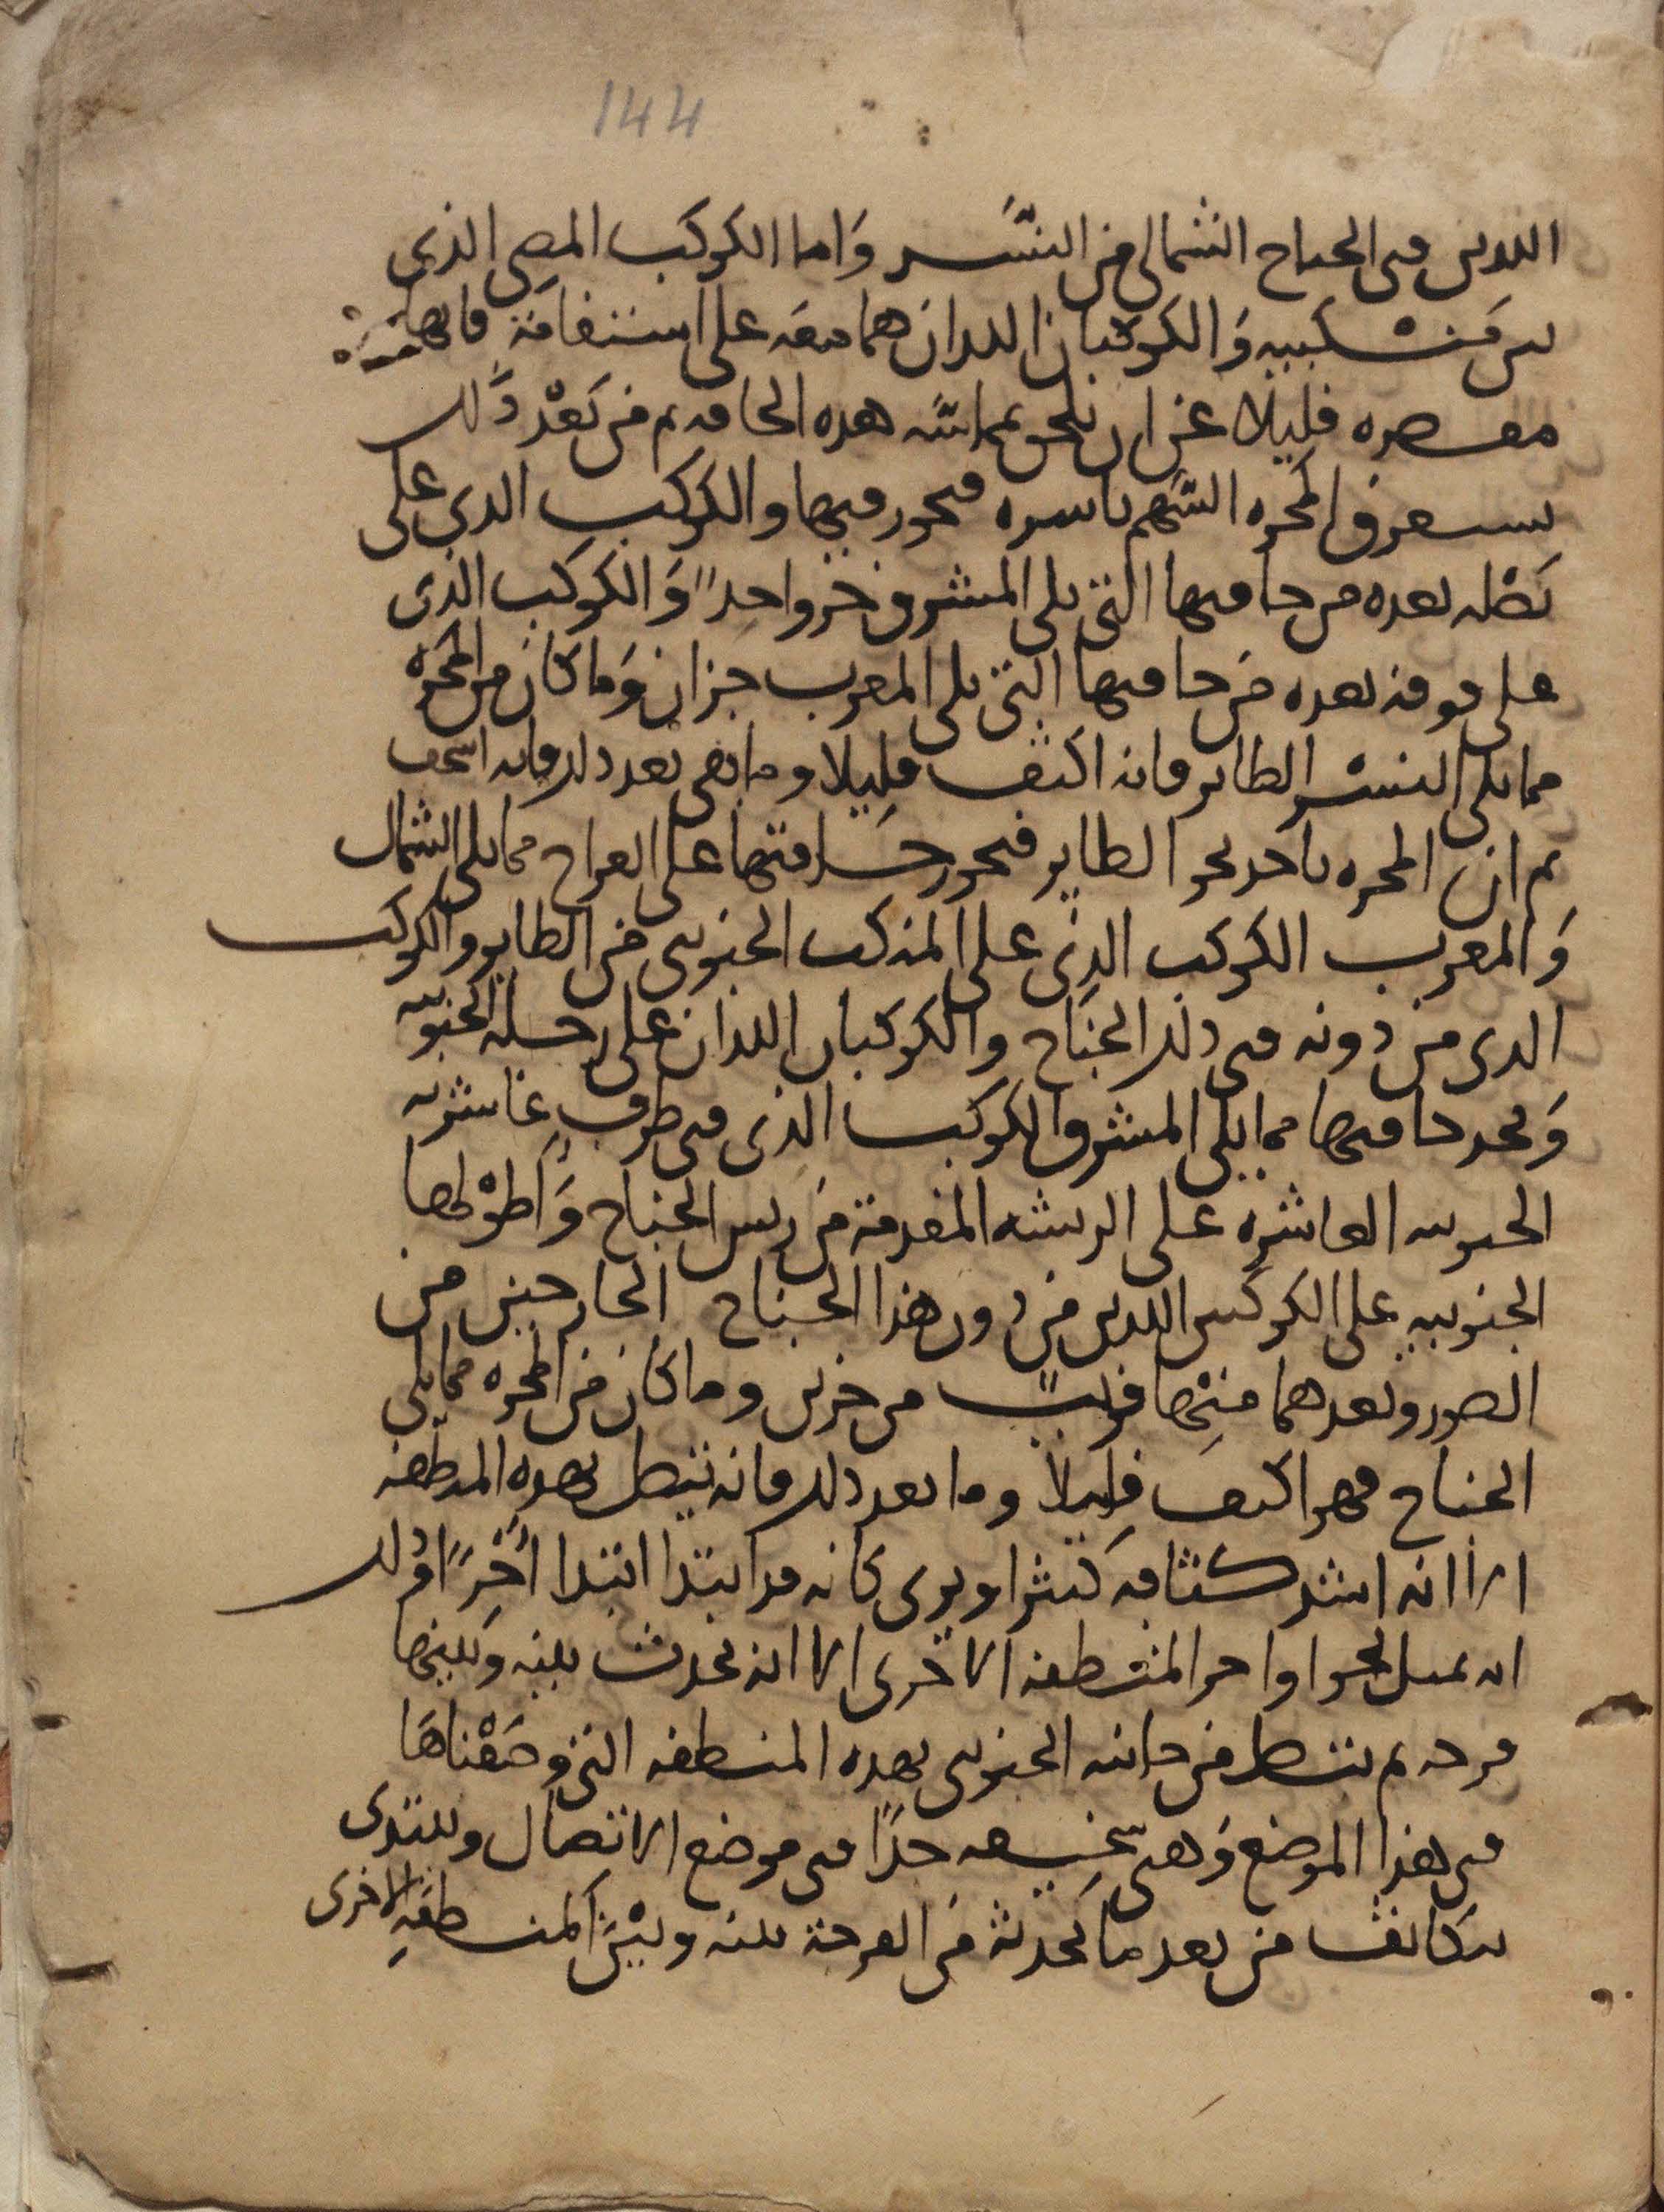 144
اللذين في الجناح الشمالي من النسر واما الكوكب المضي الذي
بين منكبيه والكوكبان اللذان هما معه على استقامة فانها
مقصره قليلا عن ان تلحق بمماسة هذه الحافة ثم من بعد ذلك
يستغرق المجره السهم باسره فتحوز فيها والكوكب الذي على
نصله بعده من حافتها التي تلي المشرق جزواحدا والكوكب الذي
على فوقه بعده من حافتها التي تلي المغرب جزان وما كان من المجره
مما يلي النسر الطاير فانه اكثف قليلا وما بقي بعد ذلك فانه اسخف
ثم ان المجره تاخذ نحو الطاير فتحوز حافتها على مما يلي الشمال
والمغرب الكوكب الذي على المنكب الجنوبي من الطاير والكوكب
الذي من دونه في ذلك الجناح والكوكبان اللذان على رجله الجنوبيه
وتحد حافتها مما يلي المشرق الكوكب الذي في طرف
الجنوبيه العاشره على الريشه المقدمة من ريش الجناح واطولها
الجنوبيه على الكوكبين اللذين من دون هذا الجناح الخارجين من
الصور وبعدهما منها قريب من جزين وما كان من المجره مما يلي
الجناح فهو اكثف قليلا وما بعد ذلك فانه تتصل بهذه المنطقه
الا انه اشد كثافه كثيرا ويرى كانه قد ابتدا ابتدا اخرا وذلك
انه يميل نحو اواخر المنطقه الاخرى الا انه تحدث بينه وبينها
فرجه ثم تتصل من جانبه الجنوبي بهذه المنطقه التي وصفناها
في هذا الموضع وهي سخيفه جدا في موضع الاتصال ويبتدي
يتكاثف من بعد ما تحدثه من الفرجة بينه وبين المنطقه الاخرى